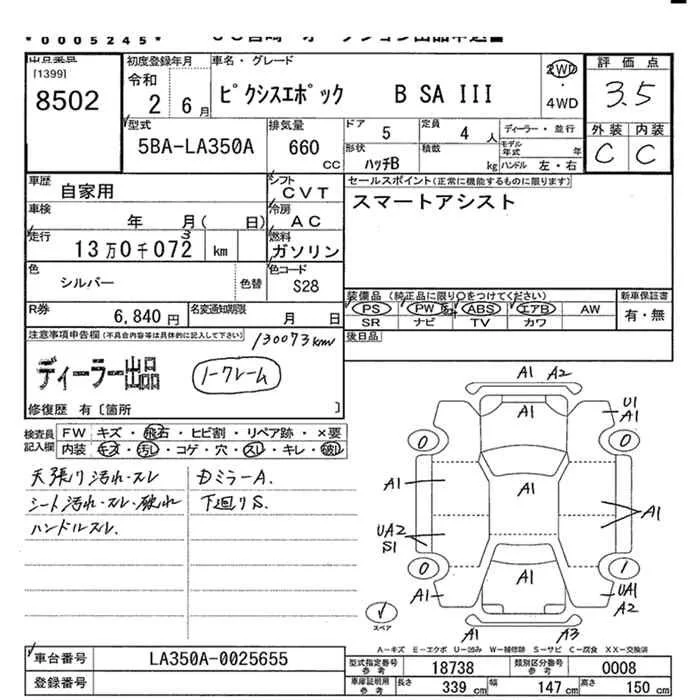 *0005245*
[1399]
8502
初度登録年月
令和
2 6月
車名・グレード
ピクシスエポック B SA III
2WD
・
4WD
評価点
3.5
外装 内装
C C
型式
5BA-LA350A
排気量
660
CC
ドア 5
定員 4 人
ディーラー・並行
モデル年式 年
形状
ハッチB
積数 kg
ハンドル 左・右
車歴
自家用
シフト
CVT
セールスポイント(正常に機能するものに限ります)
スマートアシスト
車検
年 月( 日)
冷房
AC
走行
13万0千072 km
3
燃料
ガソリン
色
シルバー
色替
色コード
S28
装備品(純正品に限り○をつけてください)
PS PW ABS エアB AW
SR ナビ TV カワ
新車保証書
有・無
R券
6,840円
名変通知期限
月 日
後日品
注意事項申告欄(不具合内容等は具体的に記入して下さい)
130073km
ディーラー出品
ノークレーム
修復歴 有〔箇所 〕
検査員
記入欄
FW キズ・飛石・ヒビ割・リペア跡・×要
内装 キズ・汚レ・コゲ・穴・スレ・キレ・破レ
天張り汚れ・スレ
シート汚れ・スレ・破れ
ハンドルスレ.
DミラーA.
下廻りS.
A1 A2
U1
A1
0 A1 0
A1 A1 A1
UA2
S1
0 1
A1 A1 UA1
A2
A1 A3
スペア
A-キズ E-エクボ U-凹み W-補修跡 S-サビ C-腐食 XX-交換済
車台番号
LA350A-0025655
登録番号
型式指定番号
参考
18738
類別区分番号
参考
0008
車庫証明用
参考
長さ 339 cm
幅 147 cm
高さ 150 cm